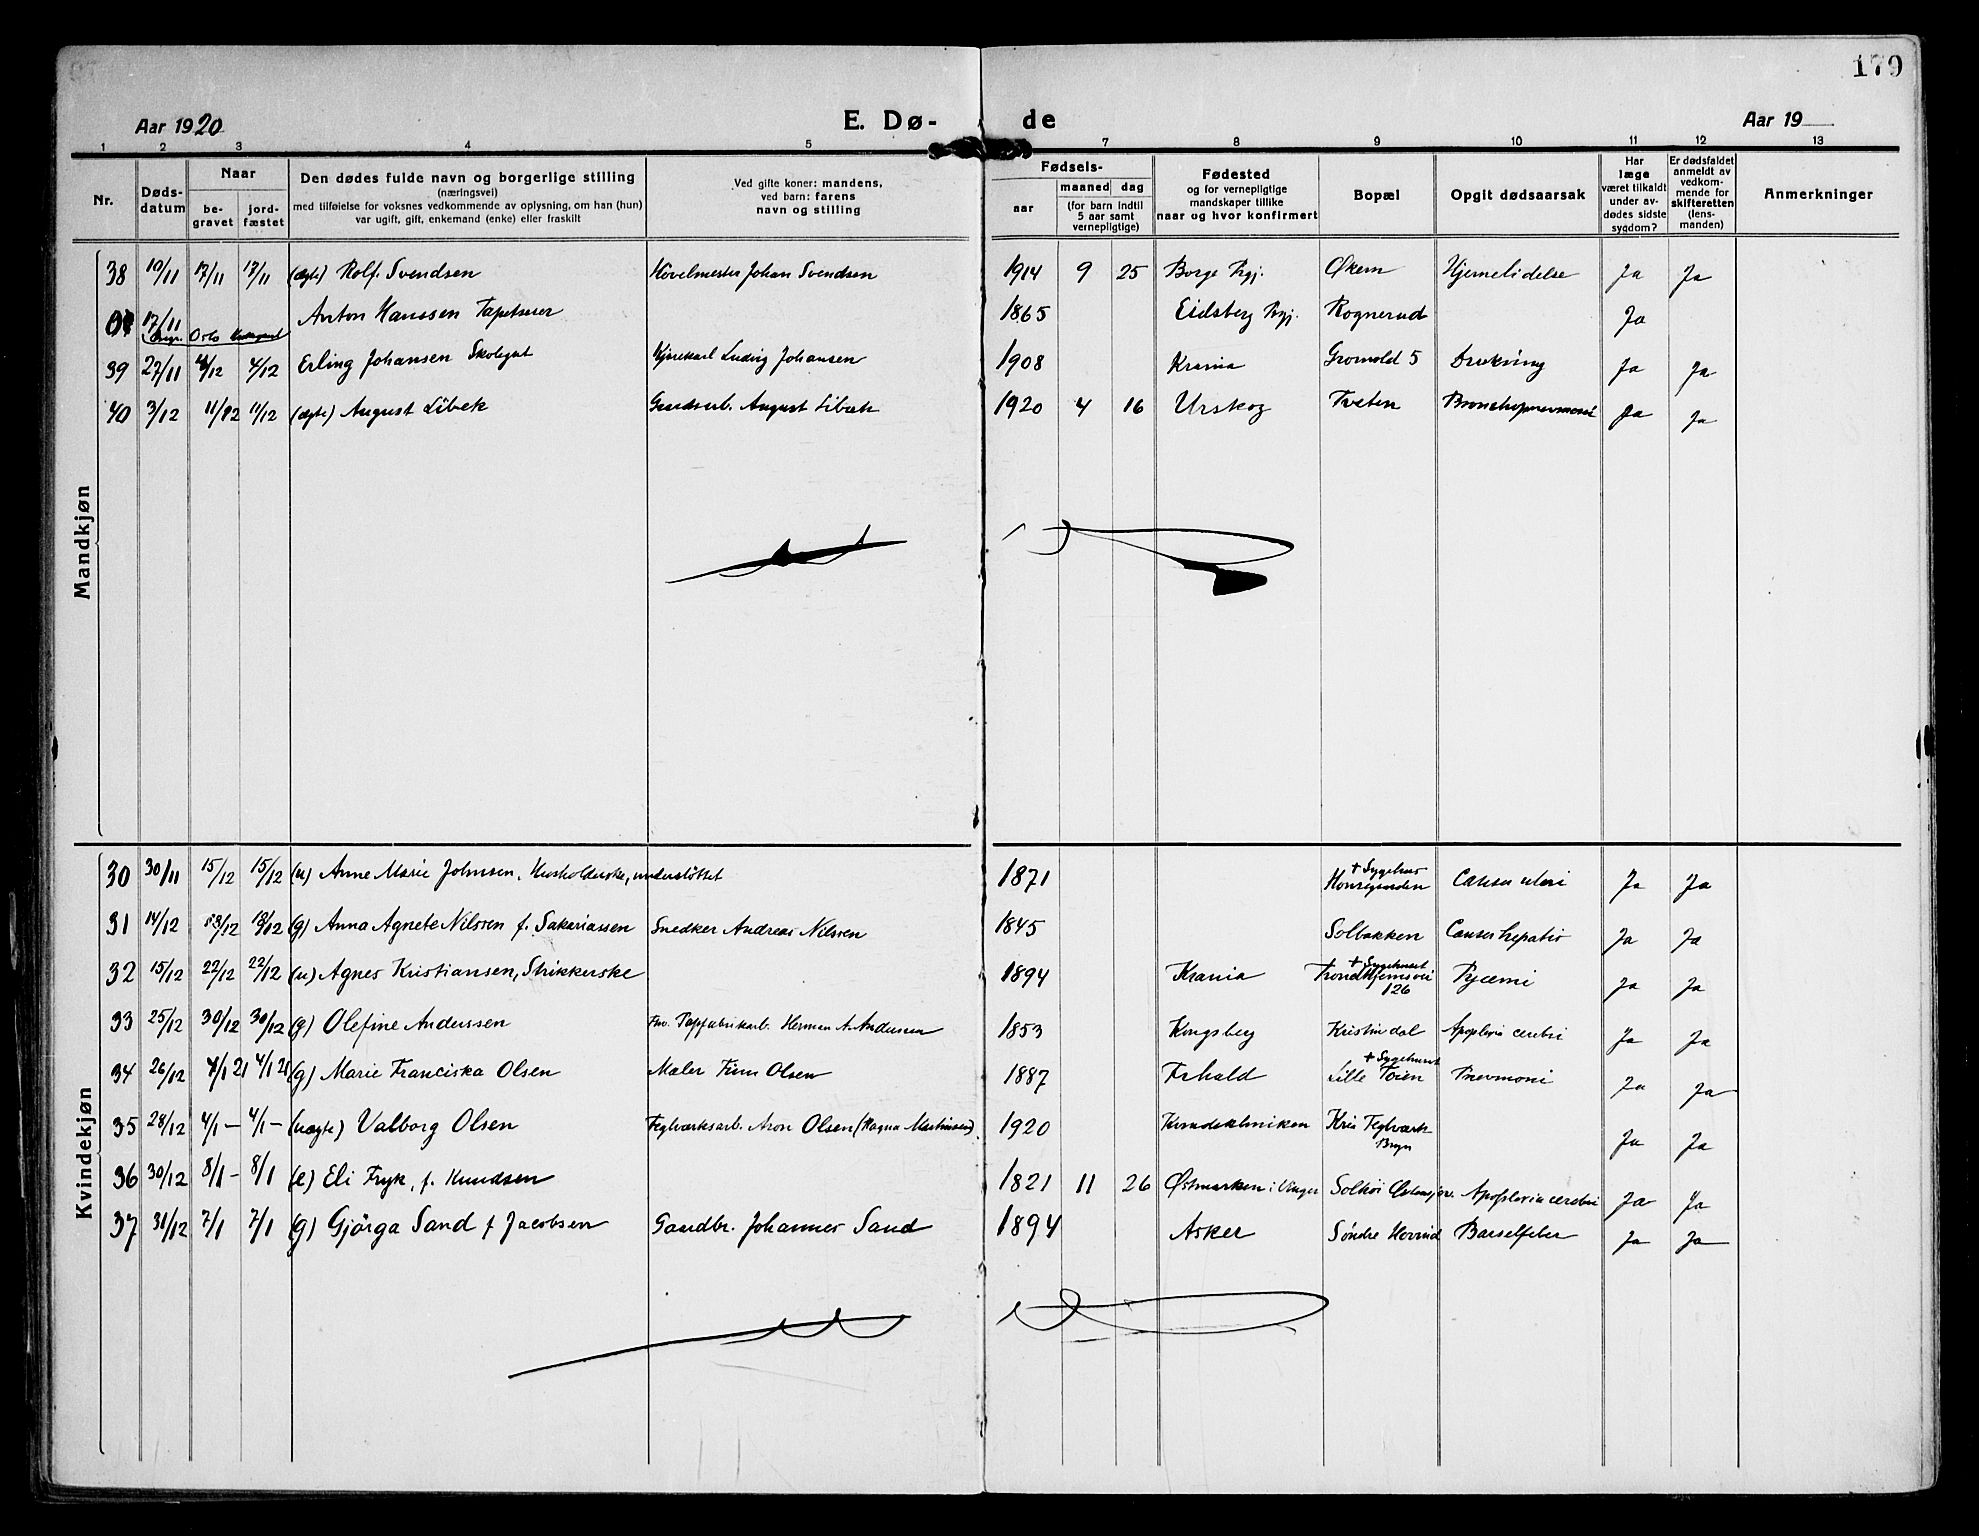 179
Aar 1920 E. Dø- de Aar 19
1 2 3 4 5 7 8 9 10 11 12 13
Nr.
Døds-
datum
Naar
be-
gravet
jord-
fæstet
Den dødes fulde navn og borgerlige stilling
(næringsvei)
med tilføielse for voksnes vedkommende av oplysning, om han (hun)
var ugift, gift, enkemand (enke) eller fraskilt
Ved gifte koner: mandens,
ved barn: farens
navn og stilling
Fødsels-
aar
maaned dag
(for barn indtil
5 aar samt
vernepligtige)
Fødested
og for vernepligtige
mandskaper tillike
naar og hvor konfirmert
Bopæl
Opgit dødsaarsak
Har
læge
været tilkaldt
under av-
dødes sidste
sygdom?
Er dødsfaldet
anmeldt av
vedkom-
mende for
skifteretten
(lens-
manden)
Anmerkninger
Mandkjøn
38 19/11 17/11 17/11 (ægte) Rolf. Svendsen Høvelmester Johan Svendsen 1914 9 25 Borge Prgj. Økern Hjernelidelse Ja Ja
17/11 Anton Hanssen Tapetserer 1865 Eidsberg Prgj. Rognerud Ja
Oslo
39 27/11 4/12 4/12 Erling Johansen Skolegut Kjørekarl Ludvig Johansen 1908 Krania Gromold 5 Drukning Ja Ja
40 3/12 11/12 11/12 (ægte) August Libek Gaardsarb. August Libæk 1920 4 16 Urskog Tveten Bronchopnevmoni Ja Ja
Kvindekjøn
30 30/11 15/12 15/12 (u) Anne Marie Johnsen, Husholderske, understöttet 1871 + Sygehus
Cancer uteri Ja Ja
31 14/12 18/12 18/12 (g) Anna Agnete Nilssen f. Sakariassen Snedker Andreas Nilssen 1845 Solbakken Cancer hepatis Ja Ja
32 15/12 22/12 22/12 (u) Agnes Kristiansen, Strikkerske 1894 Krania + Sygehuset
Trondhjemsvei
126 Pycemi Ja Ja
33 25/12 30/12 30/12 (g) Olefine Anderssen Fhv. Papfabrikarb. Herman A. Andersen 1853 Kongsberg Kristindal Apoplexia cerebri Ja Ja
34 26/12 4/1 21 4/1 21 (g) Marie Franciska Olsen Maler Finn Olsen 1887 Frhald + Sygehuset
Lille Töien Pnevmoni Ja Ja
35 28/12 4/1 – 4/1 – (uægte) Valborg Olsen Teglværksarb. Aron Olsen (Ragna Martinsen). 1920 Kvindeklinikken Kris Teglværk
Bryn Ja Ja
36 30/12 8/1 – 8/1 (e) Eli Fryk, f. Knudsen 1821 11 26 Østmarken i Vinger Solhöi Østensjøv. Apoplexia cerebri Ja Ja
37 31/12 7/1 7/1 (g) Gjörga Sand f Jacobsen Gaardbr. Johannes Sand 1894 Asker Söndre Hovind Barselfeber Ja Ja